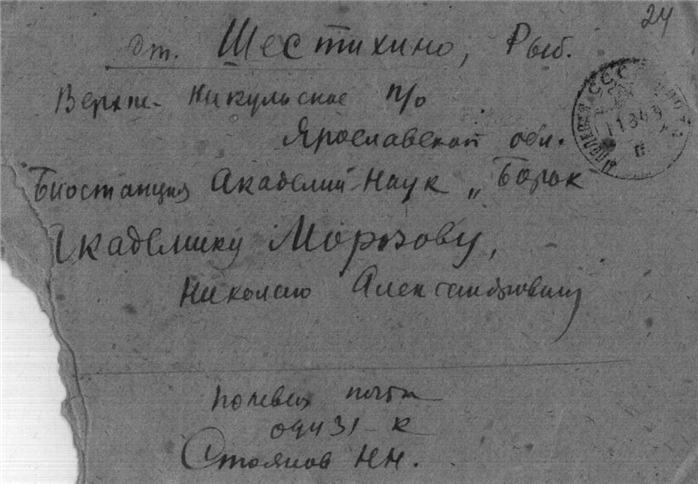 24
ст. Шестихино, Рыб.
Верхне-Никульское п/о
Ярославской обл.
Биостанция Академий Наук „Борок
Академику Морозову,
Николаю Александровичу
полевая почта
09431-К
Стоянов Н.Н.